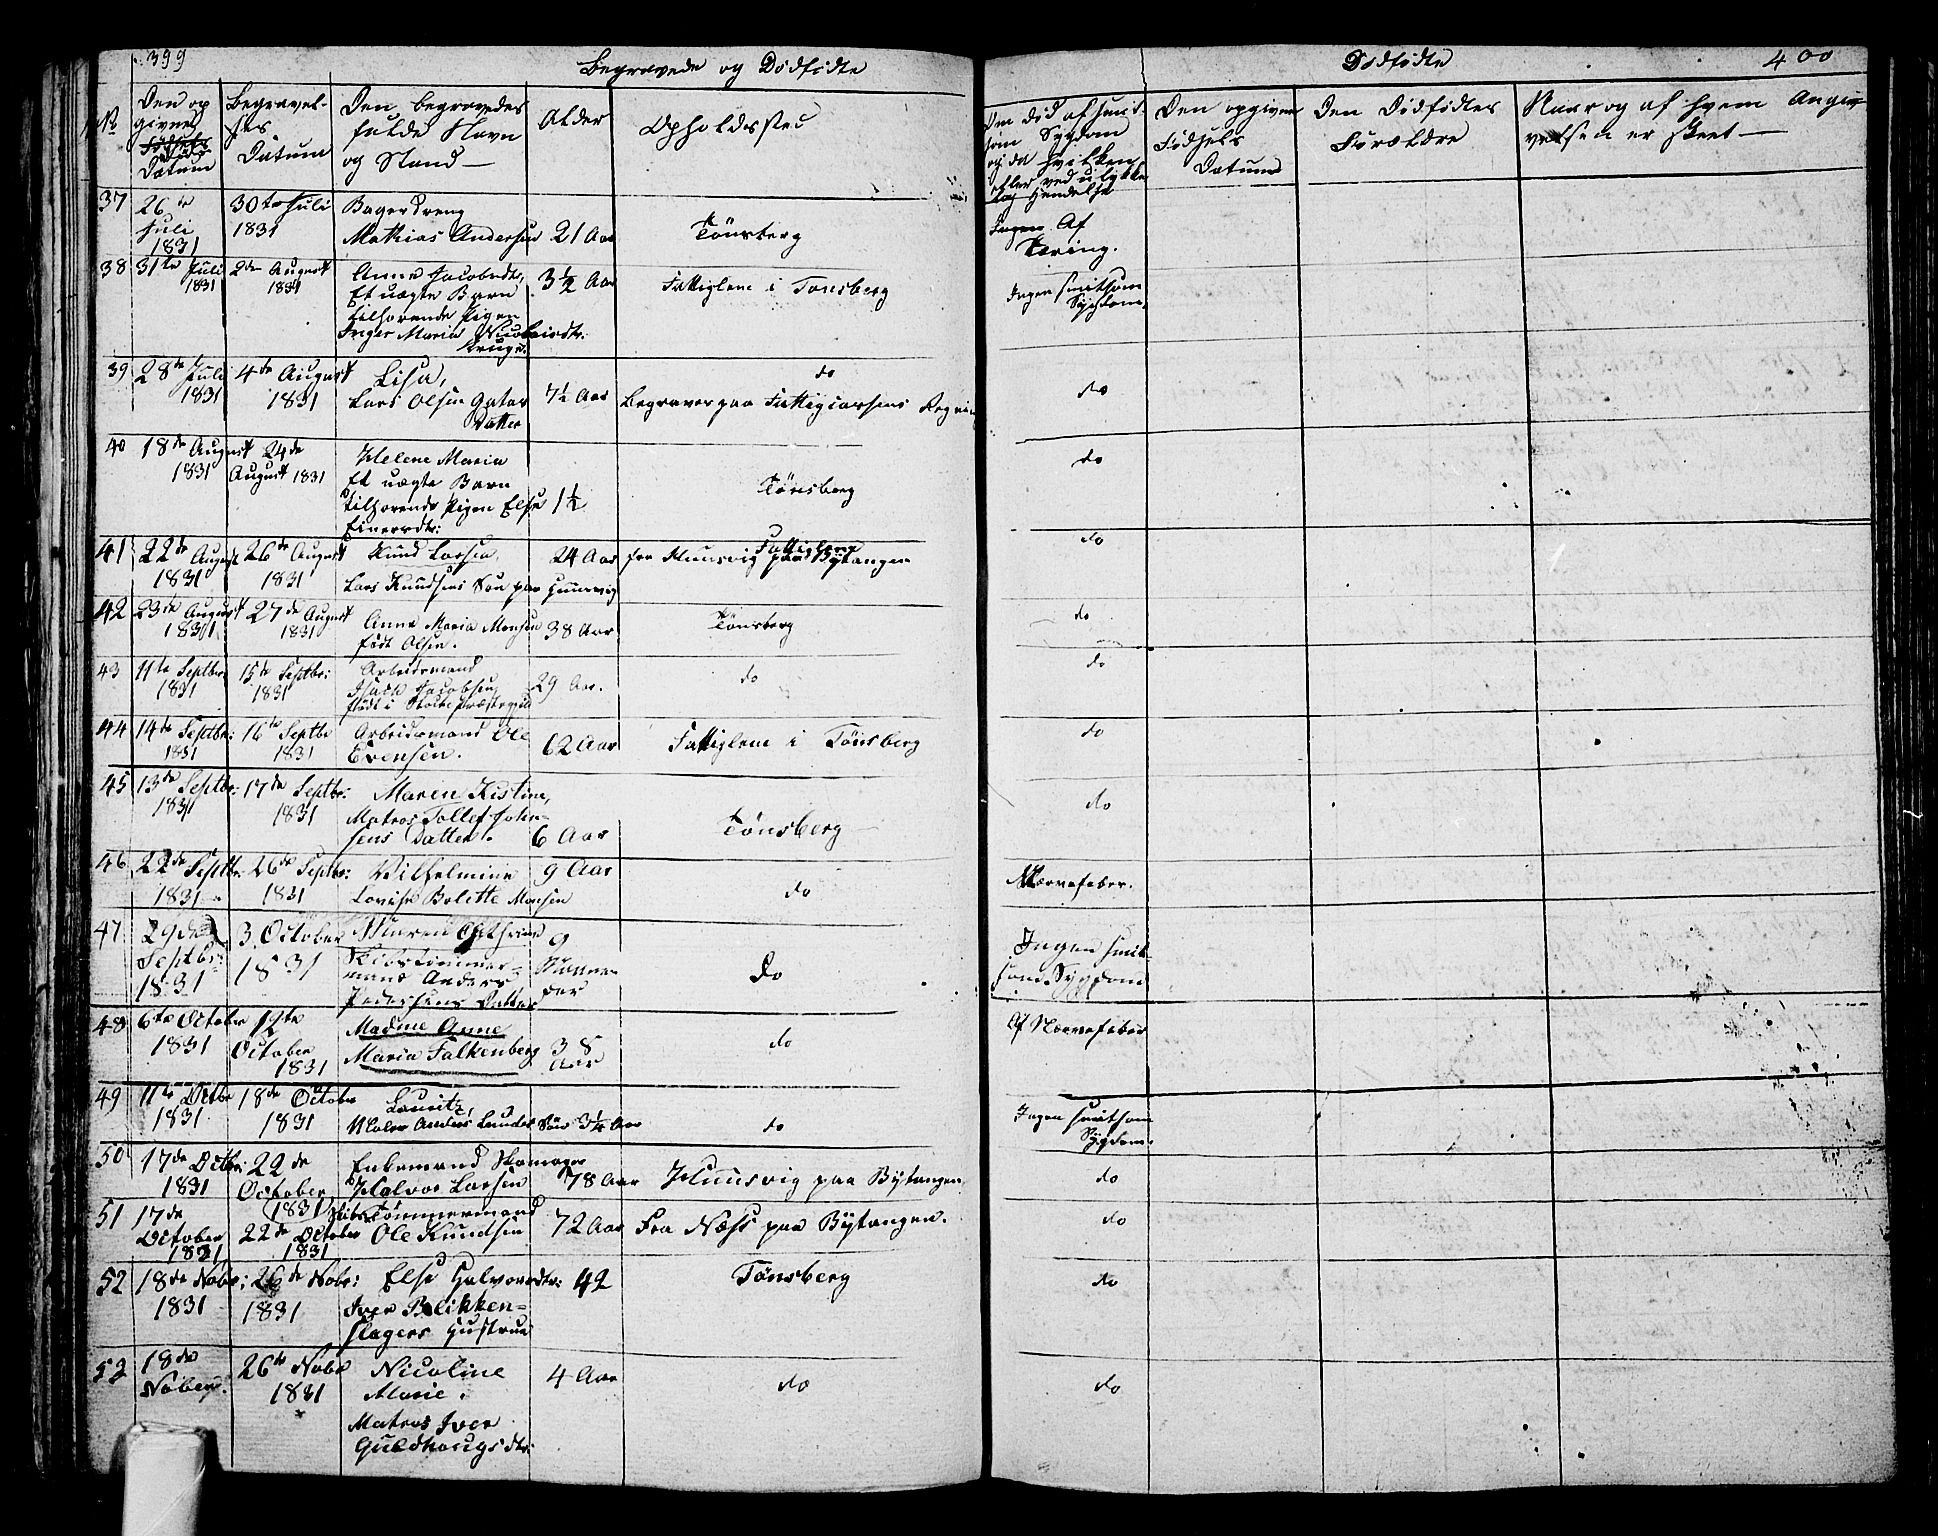 399
Begravede og Dödfödte
No
Den op
givne
Födsels
Döds
Datum
Begravel-
ses
Datum
Den begravedes
fulde Navn
og Stand —
Alder
Opholdssted
37
26de
Juli
1831
30te Juli
1831
Bagerdreng
Mathias Andersen
21 Aar
Tönsberg
38
31te Juli
1831
2den August
1831
Anne Jacobsdtr,
Et uægte Barn
tilhorende Pigen
Inger Maria
3½ Aar
Fattiglem i Tonsberg
39
28de Juli
1831
4de August
1831
Lisa,
Lars Olsen
Datter
7¼ Aar
do
Begraver paa Fattigcassens Regning
40
18de August
1831
24de
August 1831
Helene Maria
Et uægte Barn
tilhorende Pigen Else
Einersdtr:
1½
Tönsberg
41
22de August
1831
26de August
1831
Knud Larsen
Lars Knudsens Sön paa Huusvig
24 Aar
Fattiglem
fra Huusvig paa Bytangen
42
23de August
1831
27de August
1831
Anne Maria Monsen
födt Olsen.
38 Aar
Tönsberg
43
11te Septbr:
1831
15de Septbr:
1831
Arbeidsmand
Isach Jacobsen
födt i Præstegjeld
29 Aar.
do
44
14de Septbr:
1831
16te Septbr
1831
Arbeidsmand Ole
Evensen.
62 Aar
Fattiglem i Tönsberg
45
13de Septbr:
1831
17de Septbr:
1831
Maren Kistine,
Matros Tollef Johan-
sens Datter.
6 Aar
Tönsberg
46
22de Septbr:
1831
26de Septbr:
1831
Wilhelmine
Lovise Bolette Monsen
9 Aar
do
47
29de
Septbr:
1831
3. October
1831
Maren Cathrine
mand Anders
Pedersens Datter
9
Maane-
der
Do
48
6te October
1831
12te
October
1831
Madme Anne
Maria Falkenberg
38
Aar
do
49
11te Octbr
1831
18de October
1831
Lauritz,
Maler Anders Lundes Sön
3¼ Aar
do
50
17de Octbr:
1831
22de
October
1831
Enkemand Skomager
Halvor Larsen
78 Aar
Huusvig paa Bytangen
51
17de
October
1831
22de October
1831
Skibs Tömmermand
Ole Knudsen
72 Aar
Fra Næss paa Bytangen.
52
18de Nobr:
1831
26de Nobr:
1831
Else Halvorsdtr:
Iver Blikken-
slagers Hustrue
42
Tönsberg
53
18de
Nober
26de Nobr
1831
Nicoline
Marie.
Matros Iver
Guldhaugs dtr:
4 Aar
do
Dödfödte
400
Om död af smit-
som Sygdom
og da hvilken
eller ved ulykke
lig Hendelse
Den opgivne
Födsels
Datum
Den Dödfödtes
Forældre
Naar og af hvem Angi-
velsen er skeet —
Ingen Af
Tæring.
Ingen smitsom
Sygdom.
do
do
do
do
do
do
do
Nærvefeber.
Ingen smit-
som Sygdom
Af Nærvefeber
Ingen smitsom
Sygdom.
do
do
do
do